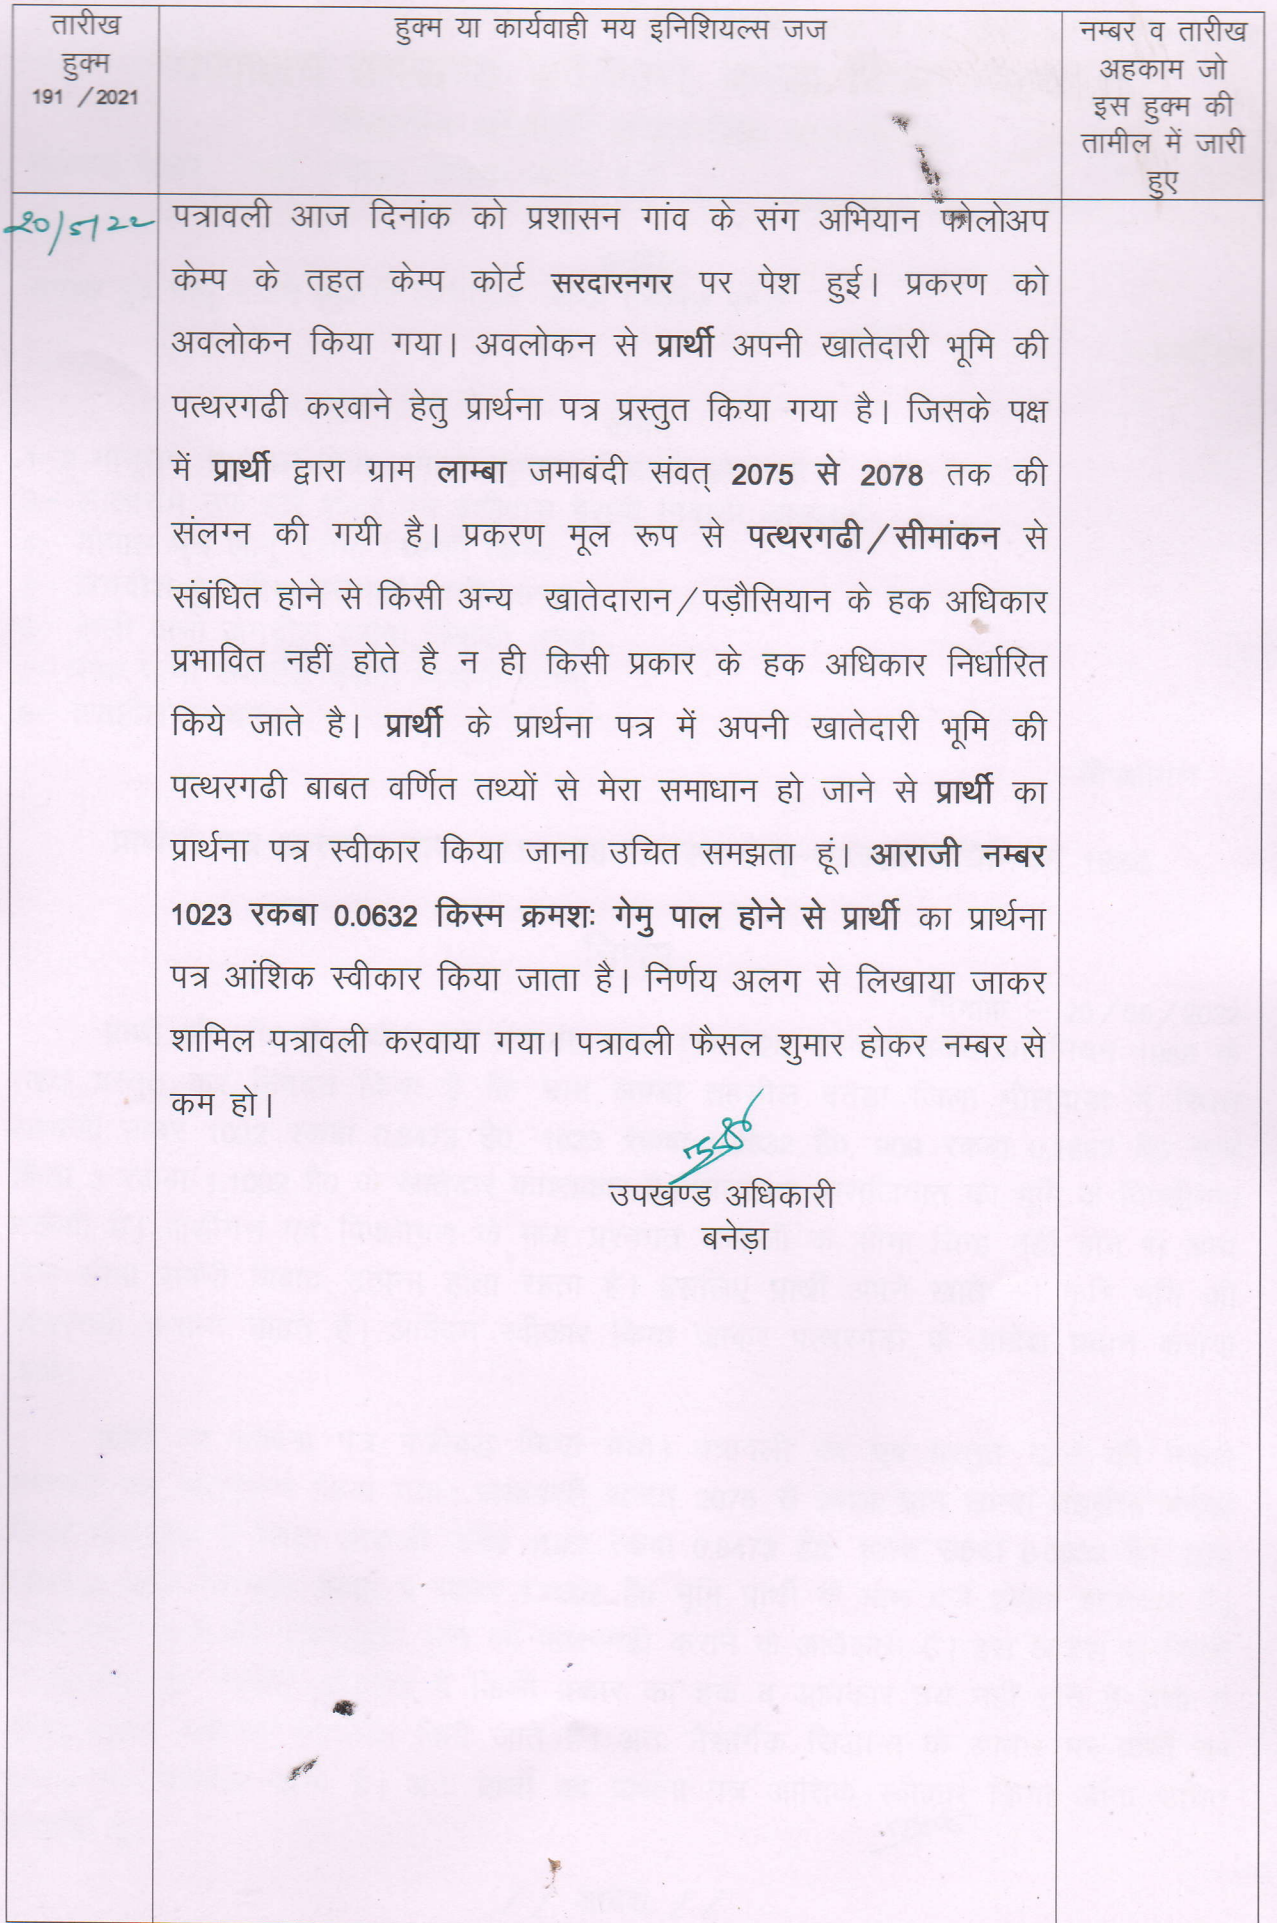 तारीख
हुक्म
191 /2021
हुक्म या कार्यवाही मय इनिशियल्स जज
नम्बर व तारीख
अहकाम जो
इस हुक्म की
तामील में जारी
हुए
20/5/22
पत्रावली आज दिनांक को प्रशासन गांव के संग अभियान फोलोअप
केम्प के तहत केम्प कोर्ट सरदारनगर पर पेश हुई। प्रकरण को
अवलोकन किया गया। अवलोकन से प्रार्थी अपनी खातेदारी भूमि की
पत्थरगढी करवाने हेतु प्रार्थना पत्र प्रस्तुत किया गया है। जिसके पक्ष
में प्रार्थी द्वारा ग्राम लाम्बा जमाबंदी संवत् 2075 से 2078 तक की
संलग्न की गयी है। प्रकरण मूल रूप से पत्थरगढी/सीमांकन से
संबंधित होने से किसी अन्य खातेदारान/पड़ौसियान के हक अधिकार
प्रभावित नहीं होते है न ही किसी प्रकार के हक अधिकार निर्धारित
किये जाते है। प्रार्थी के प्रार्थना पत्र में अपनी खातेदारी भूमि की
पत्थरगढी बाबत वर्णित तथ्यों से मेरा समाधान हो जाने से प्रार्थी का
प्रार्थना पत्र स्वीकार किया जाना उचित समझता हूं। आराजी नम्बर
1023 रकबा 0.0632 किस्म क्रमशः गेमु पाल होने से प्रार्थी का प्रार्थना
पत्र आंशिक स्वीकार किया जाता है। निर्णय अलग से लिखाया जाकर
शामिल पत्रावली करवाया गया। पत्रावली फैसल शुमार होकर नम्बर से
कम हो।
उपखण्ड अधिकारी
बनेड़ा